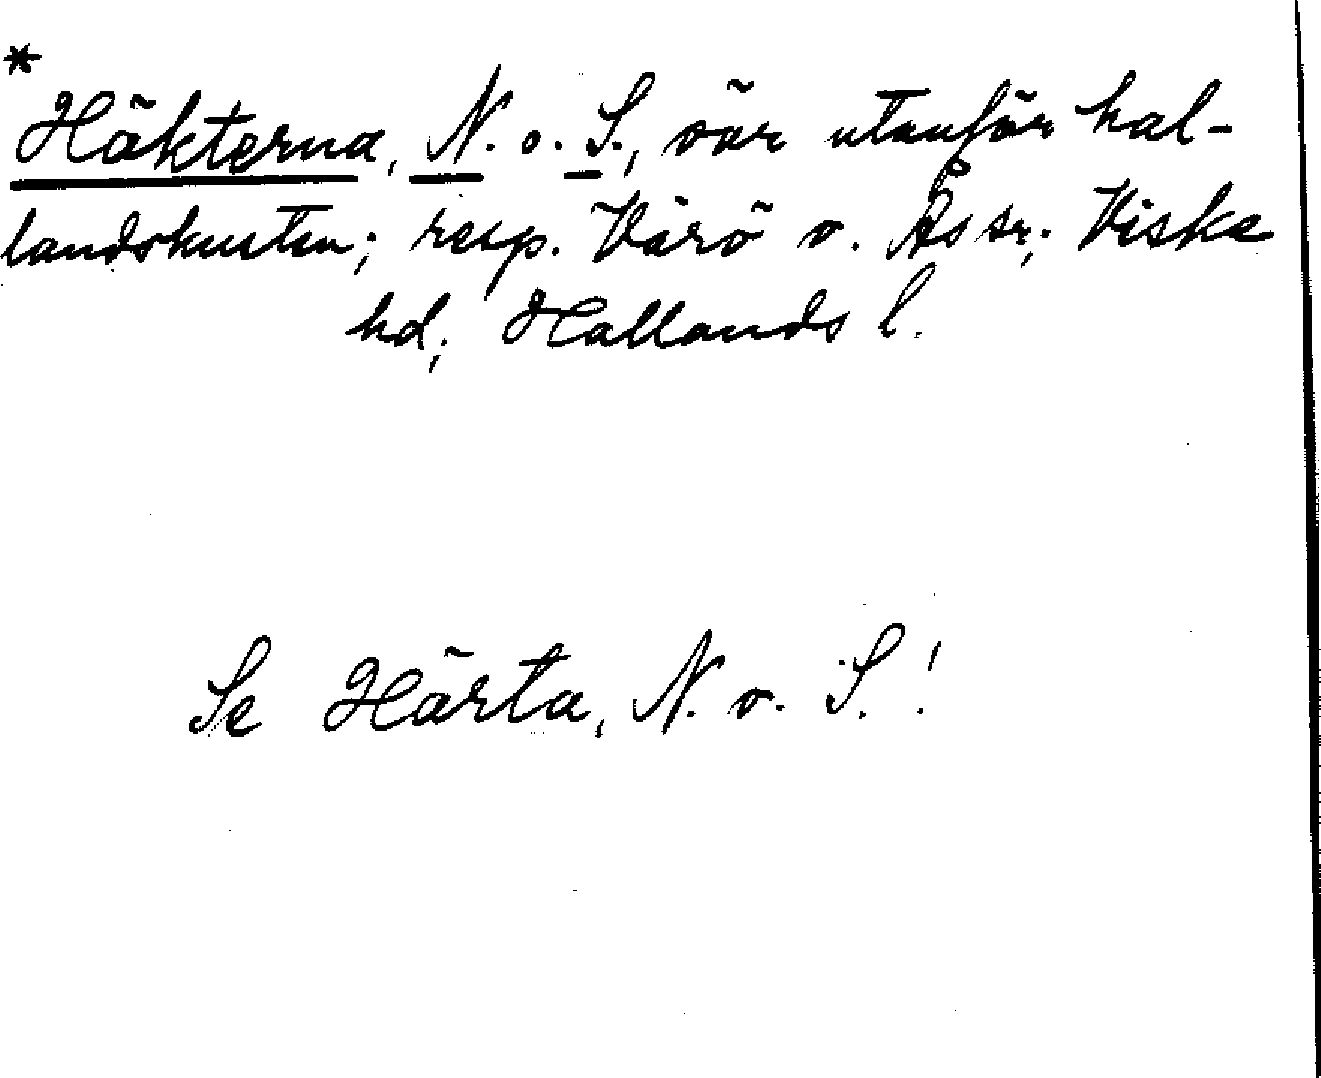 *
Häkterna, N. o. S., öar utanför hal-
landskusten; resp. Värö o. Ås sr; Viske
hd; Hallands l.
Se Härta, N. o. S.!